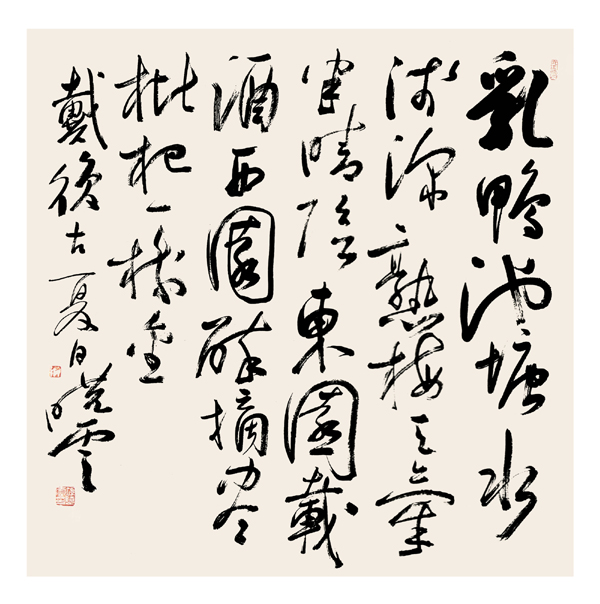 乳鴨池塘水
淺深熟梅天氣
半晴陰東園載
酒西園醉摘尽
枇杷一樹金
戴復古夏日曉雲